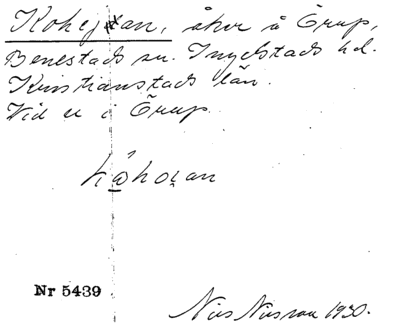 åker å Örup,
Benestads sn. Ingelstads hd.
Kristianstads län.
Vid ee i Örup
Nr 5439
Nils Nilsson 1930.